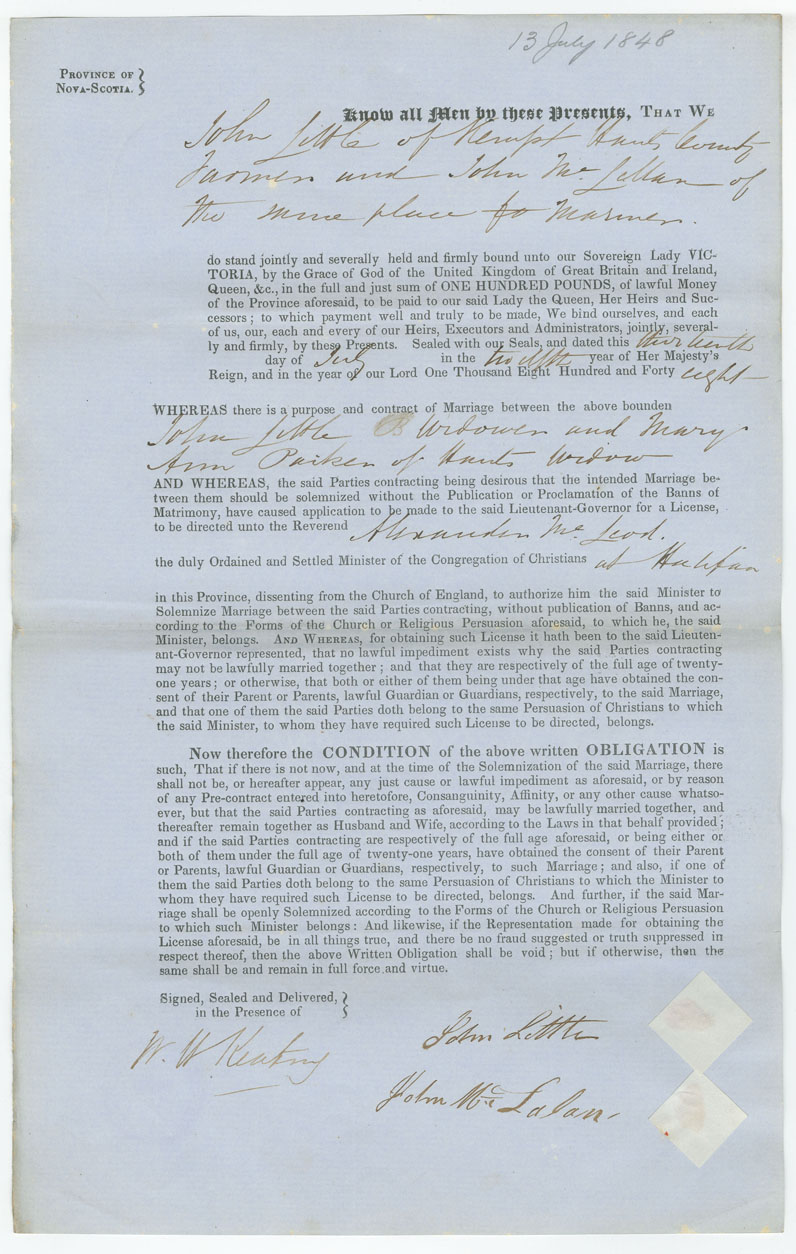 13 July 1848
PROVINCE OF
NOVA-SCOTIA.
Know all Men by these Presents, THAT WE
John Little of Kempt Hants County
Farmer and John Mc Lellan of
the same place Mariner.
do stand jointly and severally held and firmly bound unto our Sovereign Lady VIC-
TORIA, by the Grace of God of the United Kingdom of Great Britain and Ireland,
Queen, &c., in the full and just sum of ONE HUNDRED POUNDS, of lawful Money
of the Province aforesaid, to be paid to our said Lady the Queen, Her Heirs and Suc-
cessors; to which payment well and truly to be made, We bind ourselves, and each
of us, our, each and every of our Heirs, Executors and Administrators, jointly, several-
ly and firmly, by these Presents. Sealed with our Seals, and dated this thirteenth
day of July in the twelfth year of Her Majesty's
Reign, and in the year of our Lord One Thousand Eight Hundred and Forty eight
WHEREAS there is a purpose and contract of Marriage between the above bounden
John Little Widower and Mary
Ann Parker of Hants Widow
AND WHEREAS, the said Parties contracting being desirous that the intended Marriage be-
tween them should be solemnized without the Publication or Proclamation of the Banns of
Matrimony, have caused application to be made to the said Lieutenant-Governor for a License,
to be directed unto the Reverend Alexander Mc Leod.
the duly Ordained and Settled Minister of the Congregation of Christians at Halifax
in this Province, dissenting from the Church of England, to authorize him the said Minister to
Solemnize Marriage between the said Parties contracting, without publication of Banns, and ac-
cording to the Forms of the Church or Religious Persuasion aforesaid, to which he, the said
Minister, belongs. AND WHEREAS, for obtaining such License it hath been to the said Lieuten-
ant-Governor represented, that no lawful impediment exists why the said Parties contracting
may not be lawfully married together; and that they are respectively of the full age of twenty-
one years; or otherwise, that both or either of them being under that age have obtained the con-
sent of their Parent or Parents, lawful Guardian or Guardians, respectively, to the said Marriage,
and that one of them the said Parties doth belong to the same Persuasion of Christians to which
the said Minister, to whom they have required such License to be directed, belongs.
Now therefore the CONDITION of the above written OBLIGATION is
such, That if there is not now, and at the time of the Solemnization of the said Marriage, there
shall not be, or hereafter appear, any just cause or lawful impediment as aforesaid, or by reason
of any Pre-contract entered into heretofore, Consanguinity, Affinity, or any other cause whatso-
ever, but that the said Parties contracting as aforesaid, may be lawfully married together, and
thereafter remain together as Husband and Wife, according to the Laws in that behalf provided;
and if the said Parties contracting are respectively of the full age aforesaid, or being either or
both of them under the full age of twenty-one years, have obtained the consent of their Parent
or Parents, lawful Guardian or Guardians, respectively, to such Marriage; and also, if one of
them the said Parties doth belong to the same Persuasion of Christians to which the Minister to
whom they have required such License to be directed, belongs. And further, if the said Mar-
riage shall be openly Solemnized according to the Forms of the Church or Religious Persuasion
to which such Minister belongs: And likewise, if the Representation made for obtaining the
License aforesaid, be in all things true, and there be no fraud suggested or truth suppressed in
respect thereof, then the above Written Obligation shall be void; but if otherwise, then the
same shall be and remain in full force and virtue.
Signed, Sealed and Delivered,
in the Presence of
W. W Keating
John Little
John Mc Lalan.